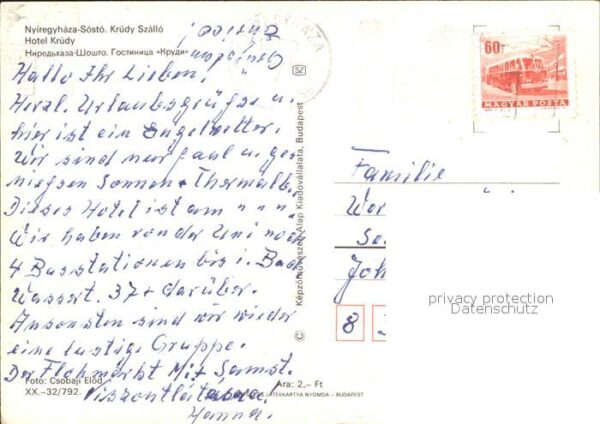 Nyíregyháza-Sóstó. Krúdy Szálló
Hotel Krúdy
Ниредьхаза-Шошто. Гостиница «Круди»
Hallo Ihr Lieben!
Herzl. Urlaubsgrüße u.
hier ist ein Engelwetter.
Wir sind nur faul u. ge
niessen Sonnen + Thermalb.
Dieses Hotel ist am
Wir haben von der Uni noch
4 Busstationen bis i. Bad
Wassert. 37 + darüber.
Ansonsten sind wir wieder
eine lustige Gruppe.
Der Flohmarkt Mi + Samst.
Viszontlátásra
Hanna.
Foto: Csobaji Előd
XX.–32/792.
Ára: 2,– Ft
JÁTÉKKARTYA NYOMDA – BUDAPEST
© Képzőművészeti Alap Kiadóvállalata, Budapest
60f
MAGYAR POSTA
Familie
Joh
8
privacy protection
Datenschutz